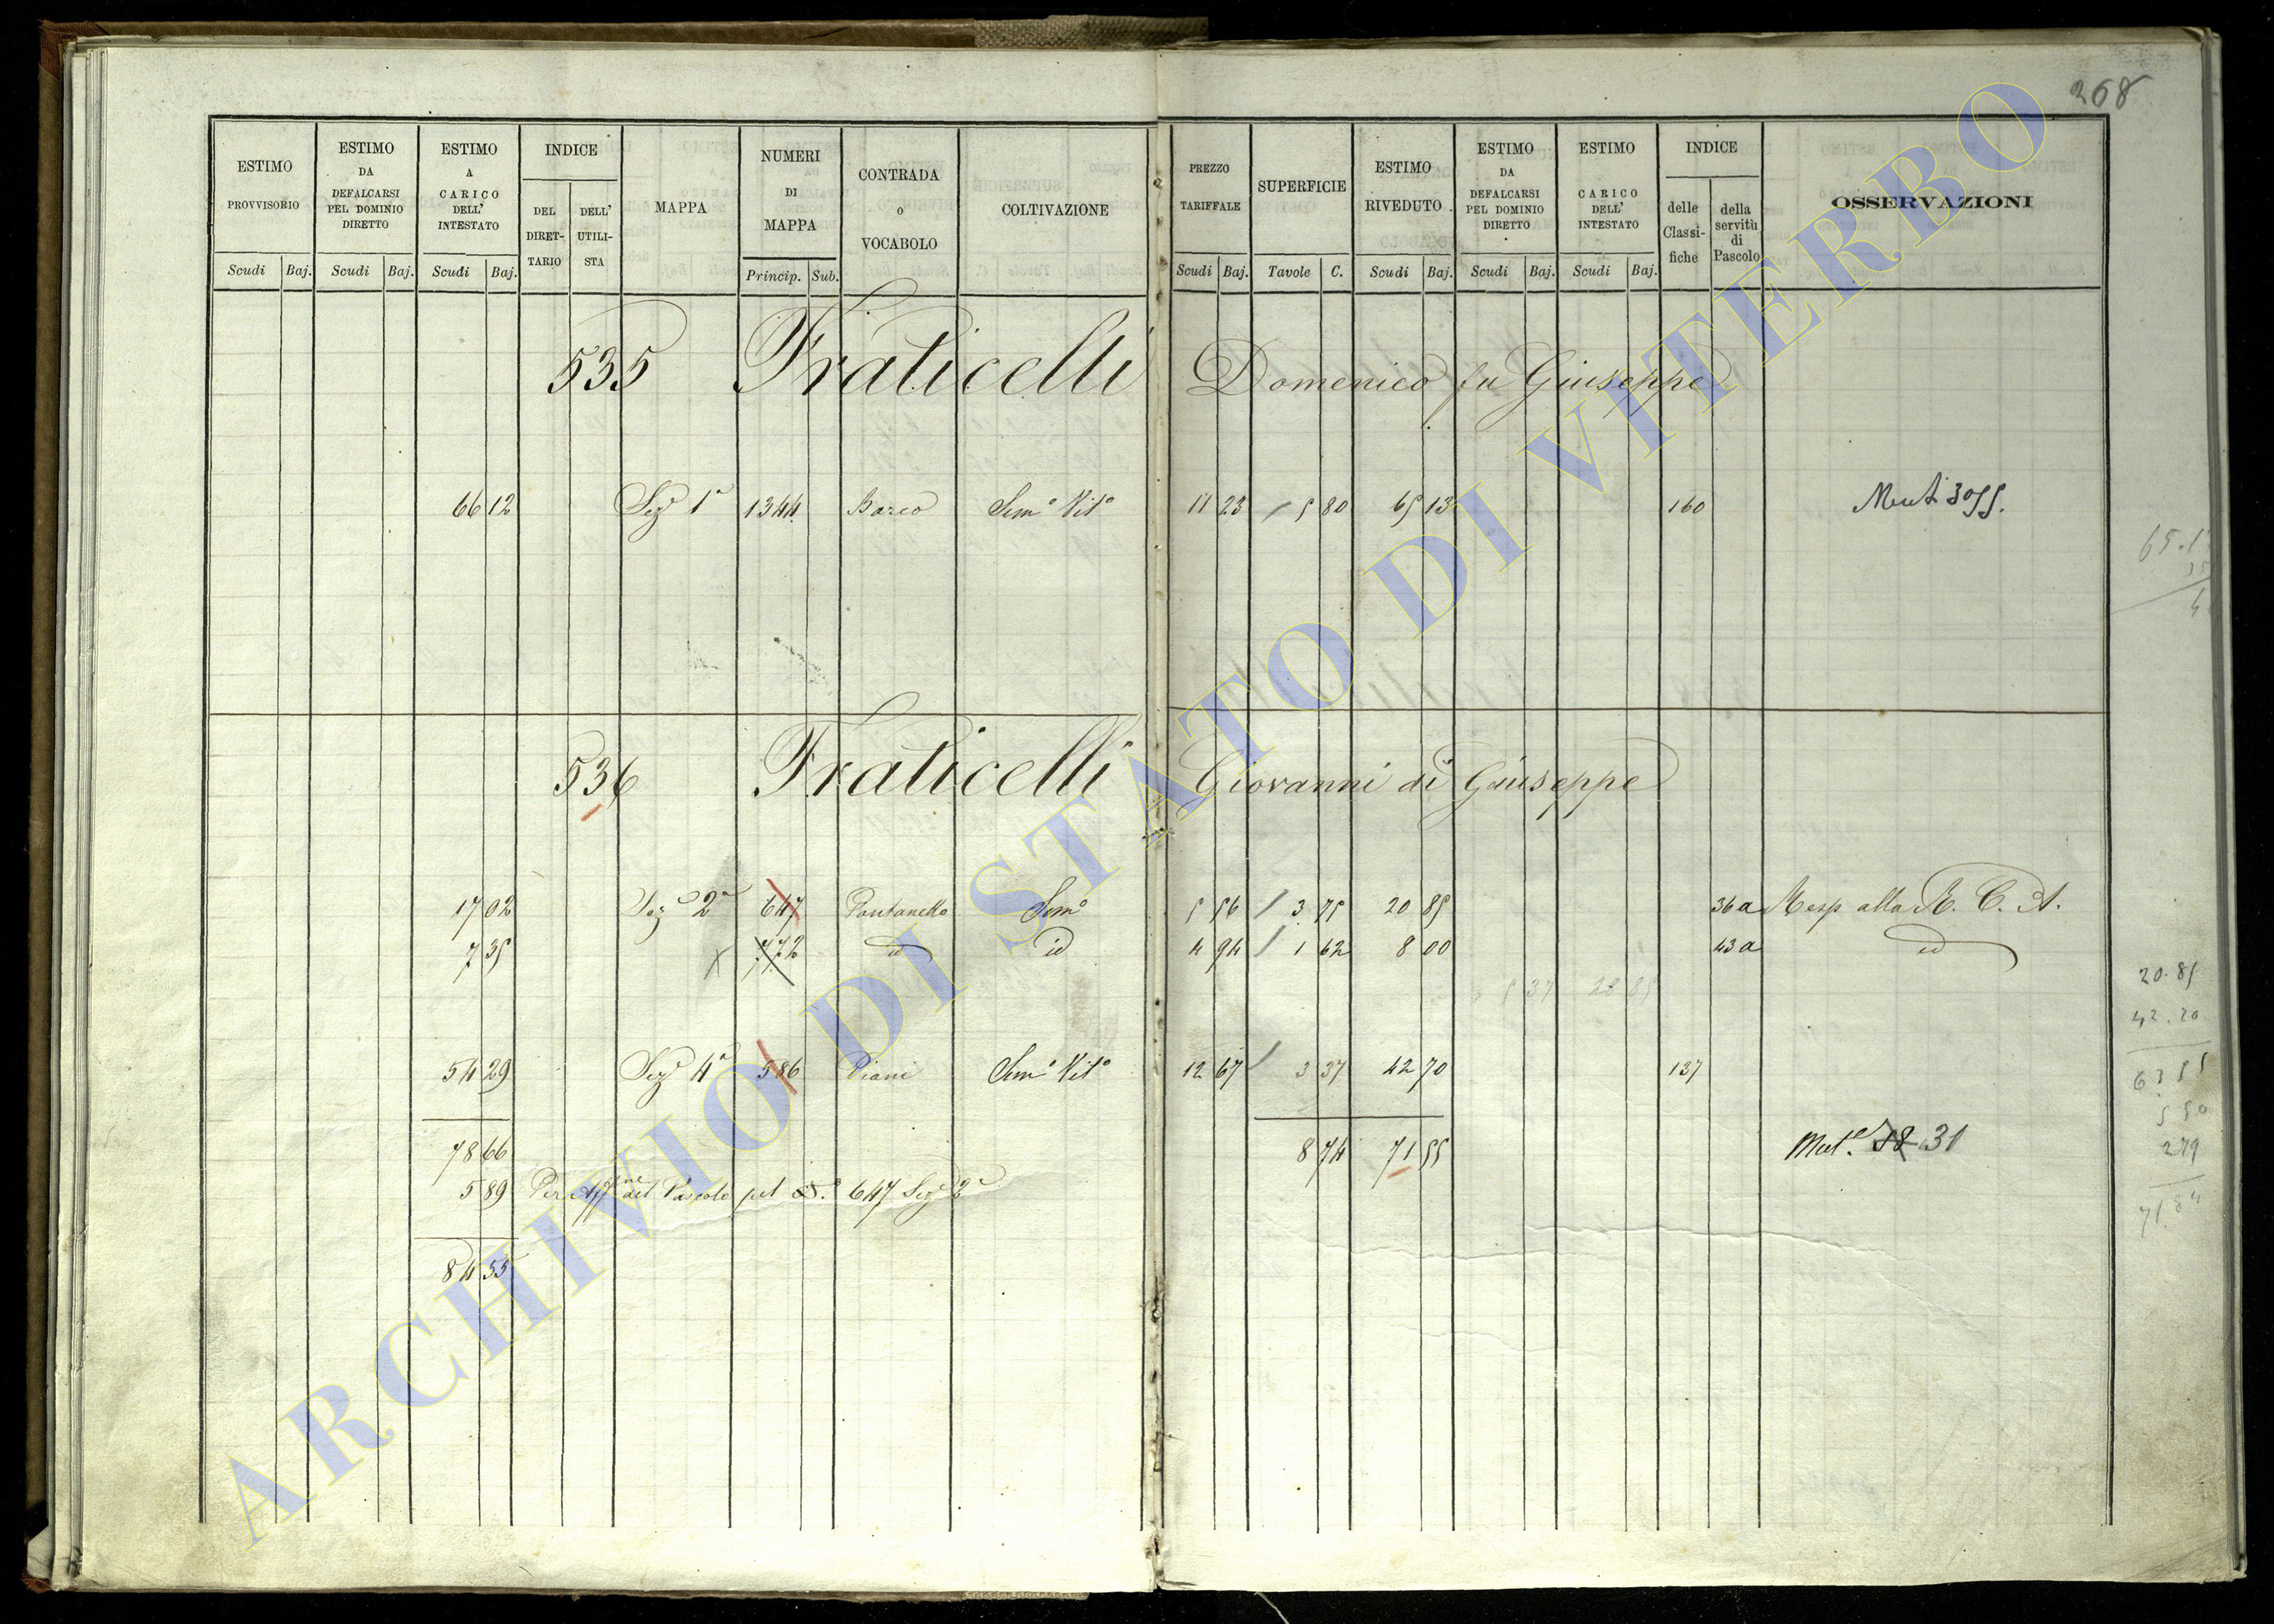 268
ESTIMO PROVVISORIO Scudi Baj.
ESTIMO DA DEFALCARSI PEL DOMINIO DIRETTO Scudi Baj.
ESTIMO A CARICO DELL' INTESTATO Scudi Baj.
INDICE DEL DIRET-TARIO DELL' UTILI-STA
MAPPA
NUMERI DI MAPPA Princip. Sub.
CONTRADA O VOCABOLO
COLTIVAZIONE
PREZZO TARIFFALE Scudi Baj.
SUPERFICIE Tavole C.
ESTIMO RIVEDUTO Scudi Baj.
ESTIMO DA DEFALCARSI PEL DOMINIO DIRETTO Scudi Baj.
ESTIMO A CARICO DELL' INTESTATO Scudi Baj.
INDICE delle Classi-fiche della servitù di Pascolo
OSSERVAZIONI
535 Fraticelli Domenico fu Giuseppe
66 12 Sez.e 1a 1344 Barco Semo Vito 11 23 5 80 65 13 160 Mut. 3055.
536 Fraticelli Giovanni di Giuseppe
17 02 Sez.e 2a 647 Pantanello Semo 5 56 3 75 20 85 36a Resp alla R. C. A.
7 35 772 id id 4 94 1 62 8 00 43a id
5 37 28 85
54 29 Sez.e 4a 586 Piani Semo Vito 12 67 3 37 42 70 137
78 66 8 74 71 55 Mut.e 18 31
5 89 Per Affne del Pascolo pel N.o 647 Sez.e 2a
84 55
20.85
42.20
279
ARCHIVIO DI STATO DI VITERBO